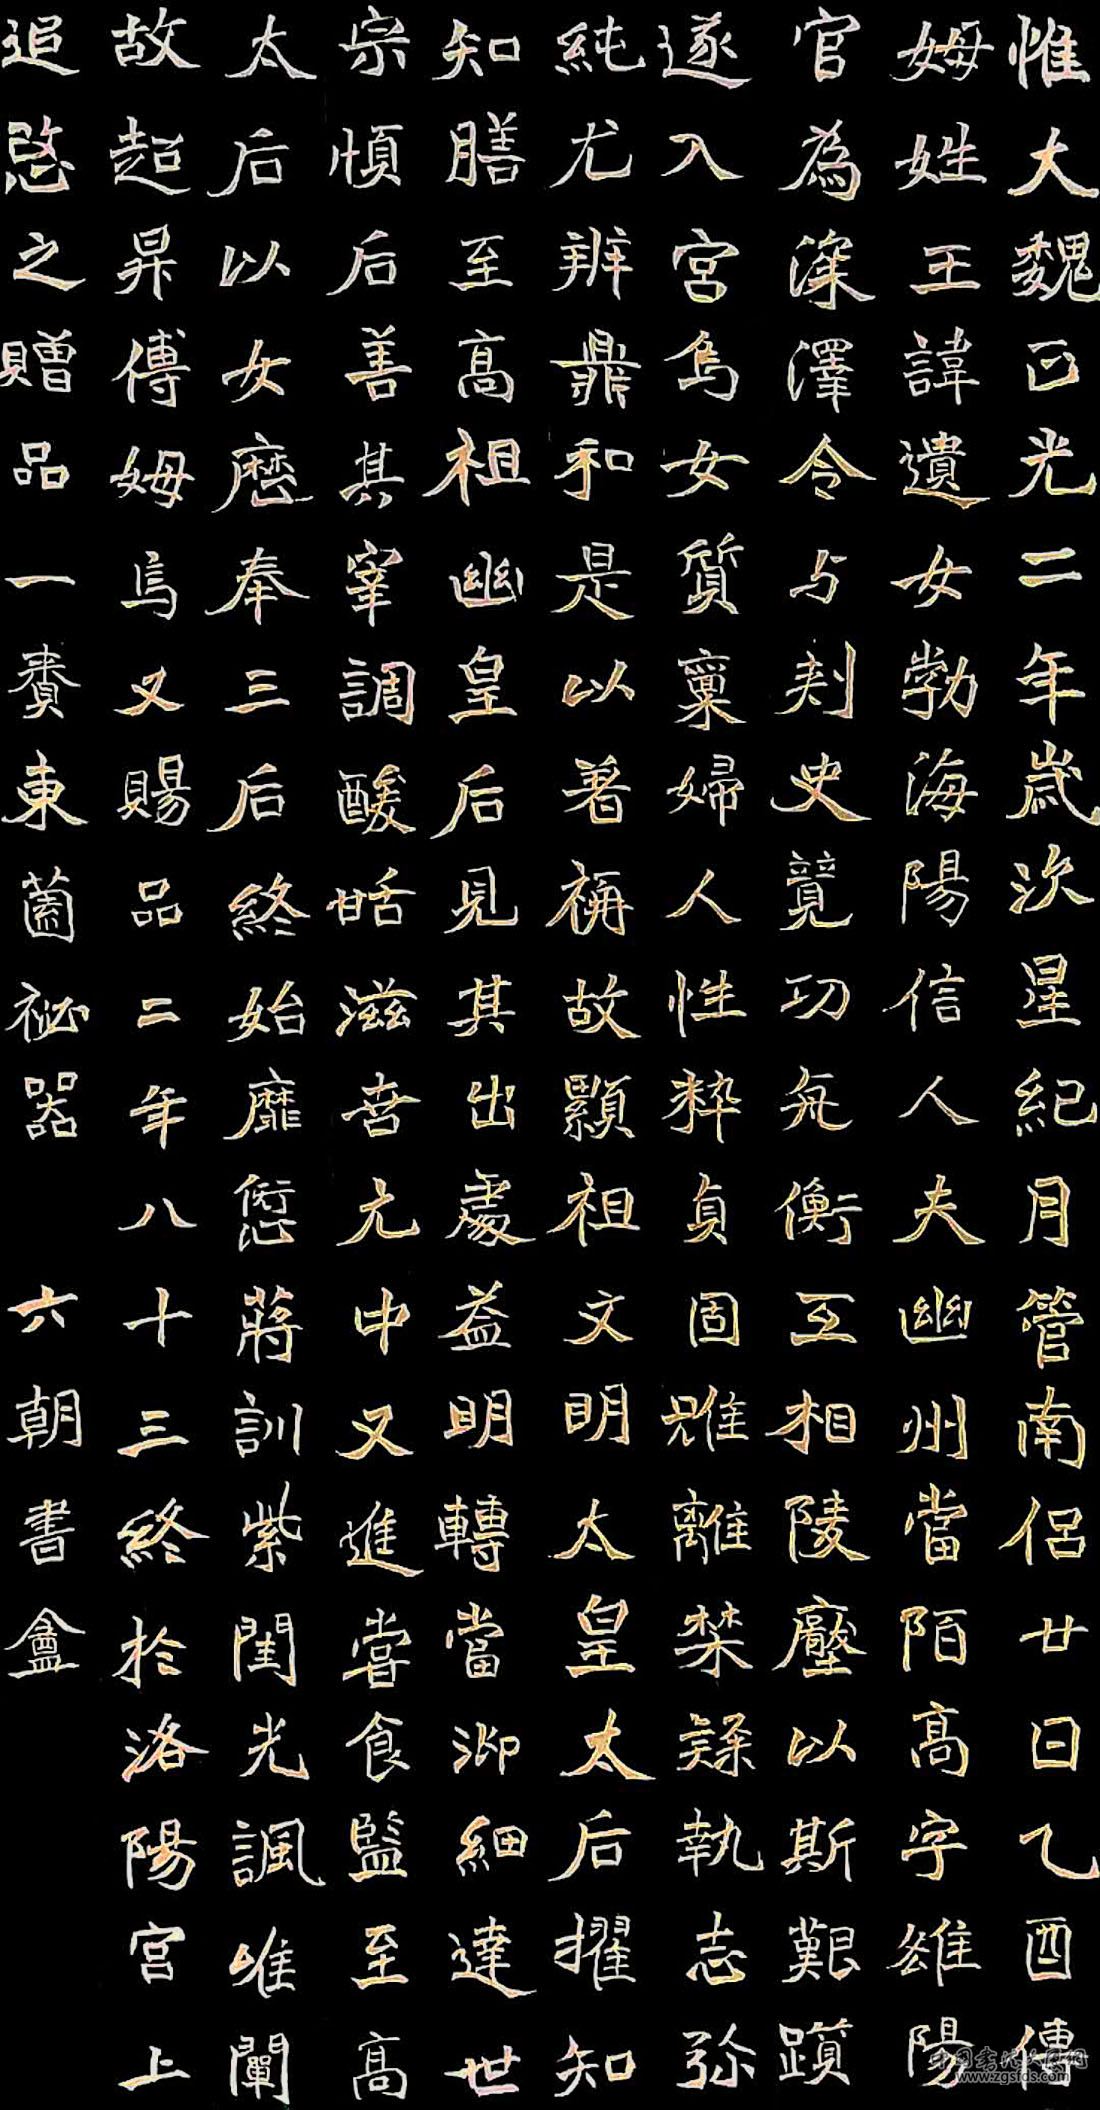 惟大魏正光二年歲次星紀月管南侶廿日乙酉傅
姆姓王諱遺女勃海陽信人夫幽州當陌高字雒陽
官為深澤令与刾史競功㐱衡互相陵壓以斯艱躓
遂入宮焉女質稟婦人性粹貞固雖離禁隸執志弥
純尤辨鼎和是以著稱故顯祖文明太皇太后擢知
知膳至高祖幽皇后見其出處益明轉當御細達世
宗順后善其宰調酸甜滋吉允中又進嘗食監至高
太后以女歷奉三后終始靡愆蔣訓紫閨光諷唯闡
故超昇傅姆焉又賜品二年八十三終於洛陽宮上
追愍之贈品一賚東薗祕器 六朝書盦
中国书法大图网
www.zgsfds.com